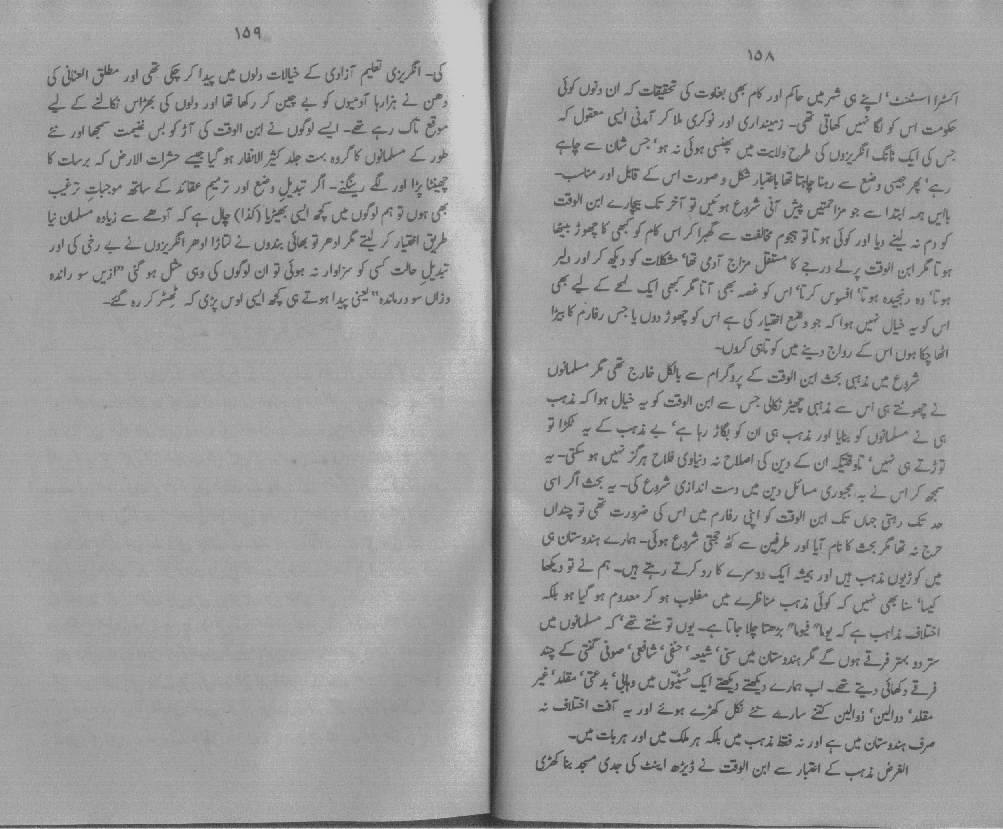 ۱۵۸
اکسٹرا اسسٹنٹ‘ اپنے ہی شہر میں حاکم اور کام بھی بغاوت کی تحقیقات کہ ان دنوں کوئی
حکومت اس کو لگا نہیں کھاتی تھی۔ زمینداری اور نوکری ملا کر آمدنی ایسی معقول کہ
جس کی ایک ٹانگ انگریزوں کی طرح ولایت میں پھنسی ہوئی نہ ہو‘ جس شان سے چاہے
رہے‘ پھر جیسی وضع سے رہنا چاہتا تھا باعتبار شکل و صورت اس کے قابل اور مناسب۔
باایں ہمہ ابتدا سے جو مزاحمتیں پیش آنی شروع ہوئیں تو آخر تک بیچارے ابن الوقت
کو دم نہ لینے دیا اور کوئی ہوتا تو ہجوم مخالفت سے گھبرا کر اس کام کو کبھی کا چھوڑ بیٹھا
ہوتا مگر ابن الوقت پرلے درجے کا مستقل مزاج آدمی تھا‘ مشکلات کو دیکھ کر اور دلیر
ہوتا‘ وہ رنجیدہ ہوتا‘ افسوس کرتا‘ اس کو غصہ بھی آتا مگر کبھی ایک لمحے کے لیے بھی
اس کو یہ خیال نہیں ہوا کہ جو وضع اختیار کی ہے اس کو چھوڑ دوں یا جس رفارم کا بیڑا
اٹھا چکا ہوں اس کے رواج دینے میں کوتاہی کروں۔
شروع میں مذہبی بحث ابن الوقت کے پروگرام سے بالکل خارج تھی مگر مسلمانوں
نے چھوٹتے ہی اس سے مذہبی چھیڑ نکالی جس سے ابن الوقت کو یہ خیال ہوا کہ مذہب
ہی نے مسلمانوں کو بنایا اور مذہب ہی ان کو بگاڑ رہا ہے‘ بے مذہب کے یہ ٹکڑا تو
توڑتے ہی نہیں‘ تاوقتیکہ ان کے دین کی اصلاح نہ دنیاوی فلاح ہرگز نہیں ہو سکتی۔ یہ
سمجھ کر اس نے بہ مجبوری مسائل دین میں دست اندازی شروع کی۔ یہ بحث اگر اسی
حد تک رہتی جہاں تک ابن الوقت کو اپنی رفارم میں اس کی ضرورت تھی تو چنداں
حرج نہ تھا مگر بحث کا نام آیا اور طرفین سے کٹھ حجتی شروع ہوئی۔ ہمارے ہندوستان ہی
میں کوڑیوں مذہب ہیں اور ہمیشہ ایک دوسرے کا رد کرتے رہتے ہیں۔ ہم نے تو دیکھا
کیسا‘ سنا بھی نہیں کہ کوئی مذہب مناظرے میں مغلوب ہو کر معدوم ہو گیا ہو بلکہ
اختلاف مذاہب ہے کہ یوما" فیوما" بڑھتا چلا جاتا ہے۔ یوں تو سنتے تھے‘ کہ مسلمانوں میں
ستر دو بہتر فرقے ہوں گے مگر ہندوستان میں سنی‘ شیعہ‘ حنفی‘ شافعی‘ صوفی گنتی کے چند
فرقے دکھائی دیتے تھے۔ اب ہمارے دیکھتے دیکھتے ایک سُنّیوں میں وہابی‘ بدعتی‘ مقلد‘ غیر
مقلد‘ دوالین‘ ذوالین کتنے سارے نئے نکل کھڑے ہوئے اور یہ آفت اختلاف نہ
صرف ہندوستان میں ہے اور نہ فقط مذہب میں بلکہ ہر ملک میں اور ہر بات میں۔
الغرض مذہب کے اعتبار سے ابن الوقت نے ڈیڑھ اینٹ کی جدی مسجد بنا کھڑی
۱۵۹
کی۔ انگریزی تعلیم آزادی کے خیالات دلوں میں پیدا کر چکی تھی اور مطلق العنانی کی
دھن نے ہزارہا آدمیوں کو بے چین کر رکھا تھا اور دلوں کی بھڑاس نکالنے کے لیے
موقع تاک رہے تھے۔ ایسے لوگوں نے ابن الوقت کی آڑ کو بس غنیمت سمجھا اور نئے
طور کے مسلمانوں کا گروہ بہت جلد کثیر الانفار ہو گیا جیسے حشرات الارض کہ برسات کا
چھینٹا پڑا اور لگے رینگنے۔ اگر تبدیل وضع اور ترمیم عقائد کے ساتھ موجبات ترغیب
بھی ہوں تو ہم لوگوں میں کچھ ایسی بھیڑیا (کذا) چال ہے کہ آدھے سے زیادہ مسلمان نیا
طریق اختیار کر لیتے مگر ادھر تو بھائی بندوں نے لتاڑا ادھر انگریزوں نے بے رخی کی اور
تبدیل حالت کسی کو سزاوار نہ ہوئی تو ان لوگوں کی وہی مثل ہو گئی "ازیں سو راندہ
وزاں سو درماندہ" یعنی پیدا ہوتے ہی کچھ ایسی اوس پڑی کہ ٹھٹھر کر رہ گئے۔